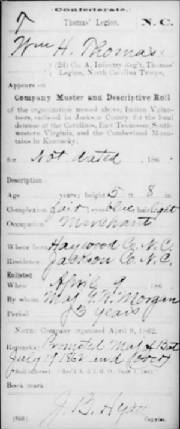 Confederate.
T
Thomas' Legion. N. C.
Wm H. Thomas
(2d) Co. A, Infantry Reg't, Thomas'
Legion, North Carolina Troops.
Appears on
Company Muster and Descriptive Roll
of the organization named above, Indian Volunteers,
enlisted in Jackson County for the local
defense of the Carolinas, East Tennessee, Southwestern
Virginia, and the Cumberland Mountains
in Kentucky;
for Not dated, 186
Description.
Age years; height 5 ft. 8 in.
Complexion fair; blue; light
Occupation Merchant
Where born Haywood Co. N.C.
Residence Jackson Co. N.C.
Enlisted
When April 9, 186
By whom Maj. G. W. Morgan
Period 3 years
NOTE: Company organized April 9, 1862.
Remarks: Promoted Maj &
July 19 1862 and
Book mark:
J. B.
Copyist.